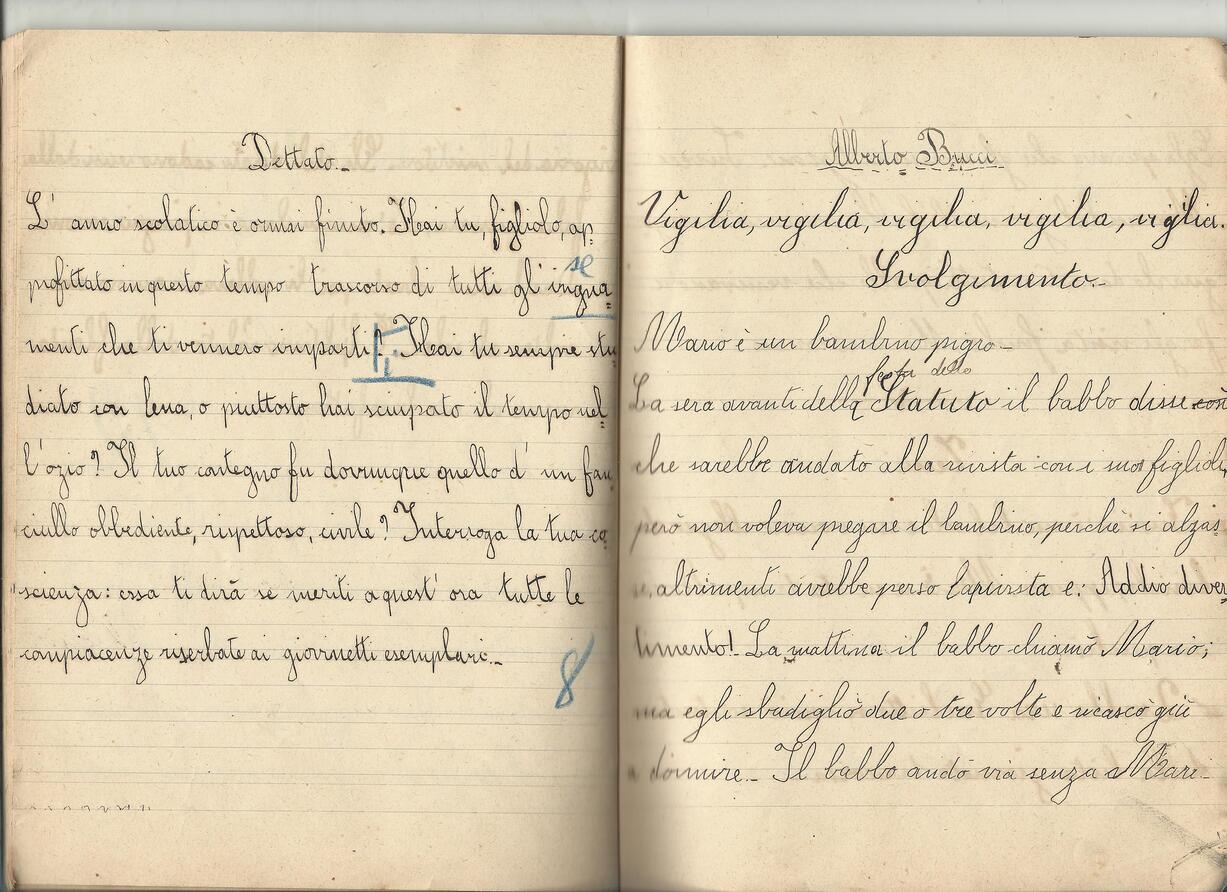 Dettato.
L'anno scolatico è ormai finito. Hai tu, figliolo, ap=
profittato in questo tempo trascorso di tutti gl'ingna=
se
menti che ti vennero imparti? Hai tu sempre stu
ti
diato con lena, o piuttosto hai sciupato il tempo nel=
l'ozio? Il tuo contegno fu dovunque quello d'un fan
ciullo obbediente, rispettoso, civile? Interroga la tua co=
scienza: essa ti dirà se meriti a quest'ora tutte le
compiacenze riserbate ai giovinetti esemplari.
8
Alberto Bucci
Vigilia, vigilia, vigilia, vigilia, viglia.
Svolgimento.
Mario è un bambino pigro
festa dello
La sera avanti della Statuto il babbo disse così
che sarebbe andato alla rivista con i suoi figlioli,
però non voleva pregare il bambino, perchè si alzas
se, altrimenti avrebbe perso la rivista e: Addio diver=
timento! La mattina il babbo chiamò Mario;
ma egli sbadigliò due o tre volte e ricascò giù
a dormire. Il babbo andò via senza Mari-